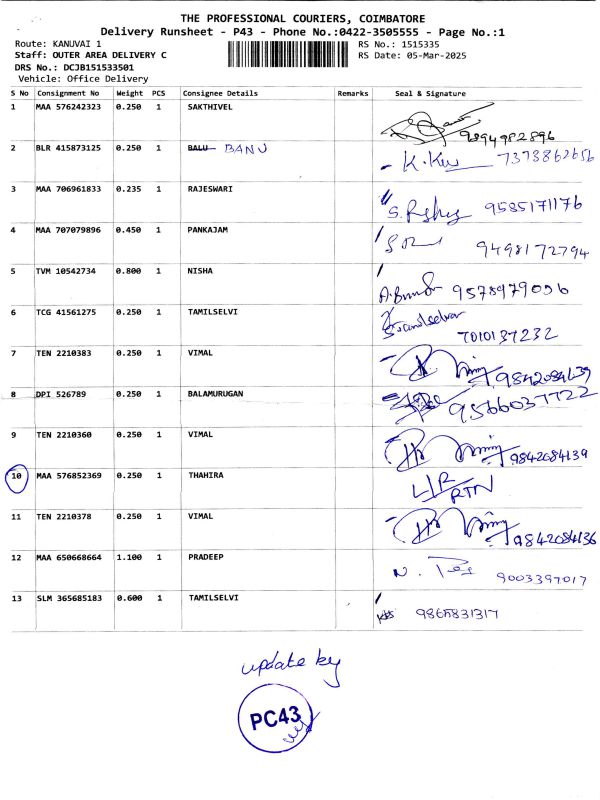 THE PROFESSIONAL COURIERS, COIMBATORE
Delivery Runsheet - P43 - Phone No.:0422-3505555 - Page No.:1
Route: KANUVAI 1 RS No.: 1515335
Staff: OUTER AREA DELIVERY C RS Date: 05-Mar-2025
DRS No.: DCJB151533501
Vehicle: Office Delivery
S No Consignment No Weight PCS Consignee Details Remarks Seal & Signature
1 MAA 576242323 0.250 1 SAKTHIVEL 9894982896
2 BLR 415873125 0.250 1 BALU BANU K. 7373862656
3 MAA 706961833 0.235 1 RAJESWARI S. 9585171176
4 MAA 707079896 0.450 1 PANKAJAM 9498172794
5 TVM 10542734 0.800 1 NISHA 9578979056
6 TCG 41561275 0.250 1 TAMILSELVI 7010137232
7 TEN 2210383 0.250 1 VIMAL 9842084139
8 DPI 526789 0.250 1 BALAMURUGAN 9566037722
9 TEN 2210360 0.250 1 VIMAL 9842084139
10 MAA 576852369 0.250 1 THAHIRA RTN
11 TEN 2210378 0.250 1 VIMAL 9842084136
12 MAA 650668664 1.100 1 PRADEEP N. 9003397017
13 SLM 365685183 0.600 1 TAMILSELVI 9865831317
update by
PC43